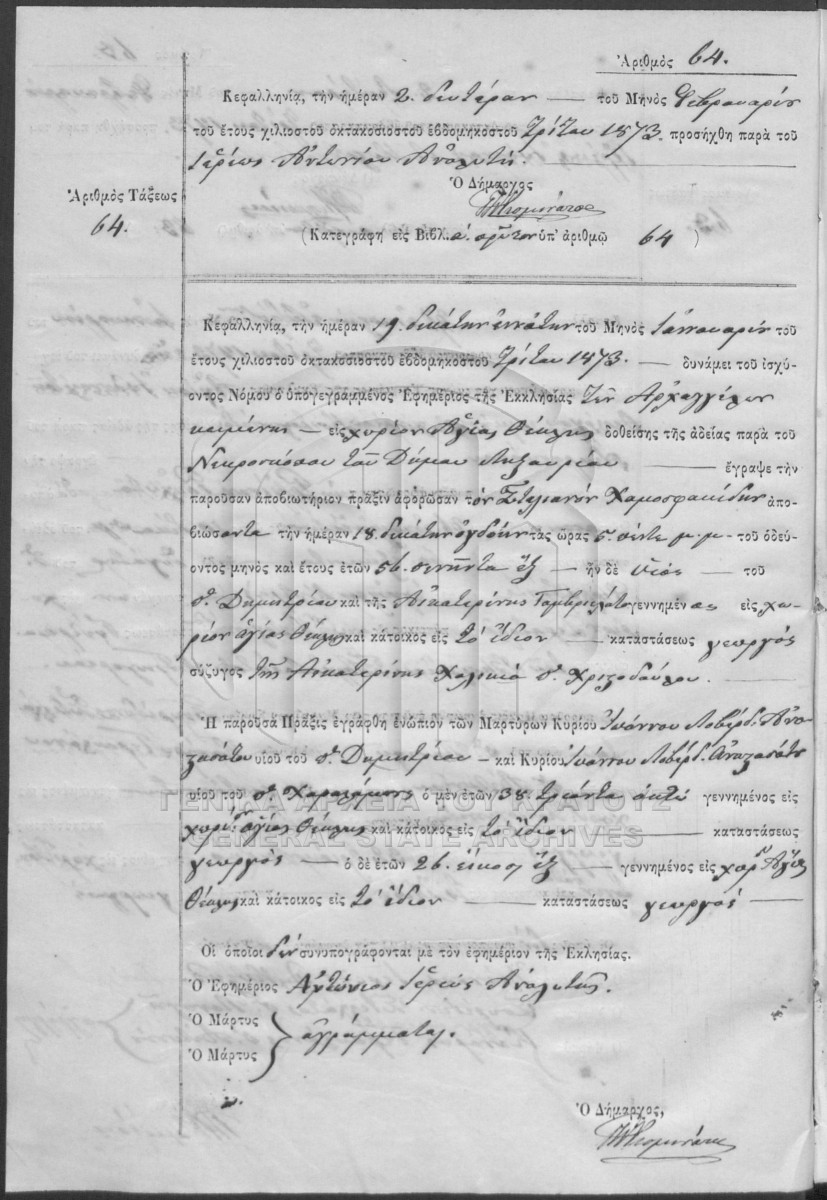 Ἀριθμὸς 64.
Κεφαλληνίᾳ, τὴν ἡμέραν 2. δευτέραν — τοῦ Μηνὸς Φεβρουαρίου
τοῦ ἔτους χιλιοστοῦ ὀκτακοσιοστοῦ ἑβδομηκοστοῦ τρίτου 1873. προσήχθη παρὰ τοῦ
Ἱερέως Ἀντωνίου Ἀναλυτῆ.
Ὁ Δήμαρχος
Ἀριθμὸς Τάξεως
64.
(Κατεγράφη εἰς Βιβλ. α. πρῶτον ὑπ' ἀριθμῷ 64)
Κεφαλληνίᾳ, τὴν ἡμέραν 19. δεκάτην ἐννάτην τοῦ Μηνὸς Ἰαννουαρίου τοῦ
ἔτους χιλιοστοῦ ὀκτακοσιοστοῦ ἑβδομηκοστοῦ τρίτου 1873. — δυνάμει τοῦ ἰσχύ-
οντος Νόμου ὁ ὑπογεγραμμένος Ἐφημέριος τῆς Ἐκκλησίας τῶν Ἀρχαγγέλων
κειμένης — εἰς χωρίον Ἁγίας Θέκλης δοθείσης τῆς ἀδείας παρὰ τοῦ
Νεκροσκόπου τοῦ Δήμου Ληξουρίου — ἔγραψε τὴν
παροῦσαν ἀποβιωτήριον πρᾶξιν ἀφορῶσαν τὸν Στυλιανὸν ἀπο-
βιώσαντα τὴν ἡμέραν 18. δεκάτην ὀγδόην τὰς ὥρας 5. πέντε μ.μ. τοῦ ὁδεύ-
οντος μηνὸς καὶ ἔτους ἐτῶν 56. πενῆντα ἕξ — ἦν δὲ υἱὸς — τοῦ
π. Δημητρίου καὶ τῆς Αἰκατερίνης γεννημένος εἰς χω-
ρίον ἁγίας Θέκλης καὶ κάτοικος εἰς τὸ ἴδιον — καταστάσεως γεωργὸς
σύζυγος τῆς Αἰκατερίνης π. Χριστοδούλου.
Ἡ παροῦσα Πρᾶξις ἐγράφθη ἐνώπιον τῶν Μαρτύρων Κυρίου Ἰωάννου Λοβέρδ. Ἀνα-
στασάτου υἱοῦ τοῦ π. Δημητρίου — καὶ Κυρίου Ἰωάννου Λοβέρδ. Ἀναστασάτου
υἱοῦ τοῦ π. Χαραλάμπους ὁ μὲν ἐτῶν 38. τριάντα ὀκτὼ γεννημένος εἰς
ΓΕΝΙΚΑ ΑΡΧΕΙΑ ΤΟΥ ΚΡΑΤΟΥΣ
χωρίον ἁγίας Θέκλης καὶ κάτοικος εἰς τὸ ἴδιον — καταστάσεως
GENERAL STATE ARCHIVES
γεωργὸς — ὁ δὲ ἐτῶν 26. εἴκοσι ἕξ — γεννημένος εἰς χωρ. Ἁγίας
Θέκλης καὶ κάτοικος εἰς τὸ ἴδιον — καταστάσεως γεωργὸς —
Οἱ ὁποῖοι δὲν συνυπογράφονται μὲ τὸν ἐφημέριον τῆς Ἐκλησίας.
Ὁ Ἐφημέριος Ἀντώνιος Ἱερεὺς Ἀναλυτῆς.
Ὁ Μάρτυς
ἀγράμματοι.
Ὁ Μάρτυς
Ὁ Δήμαρχος,